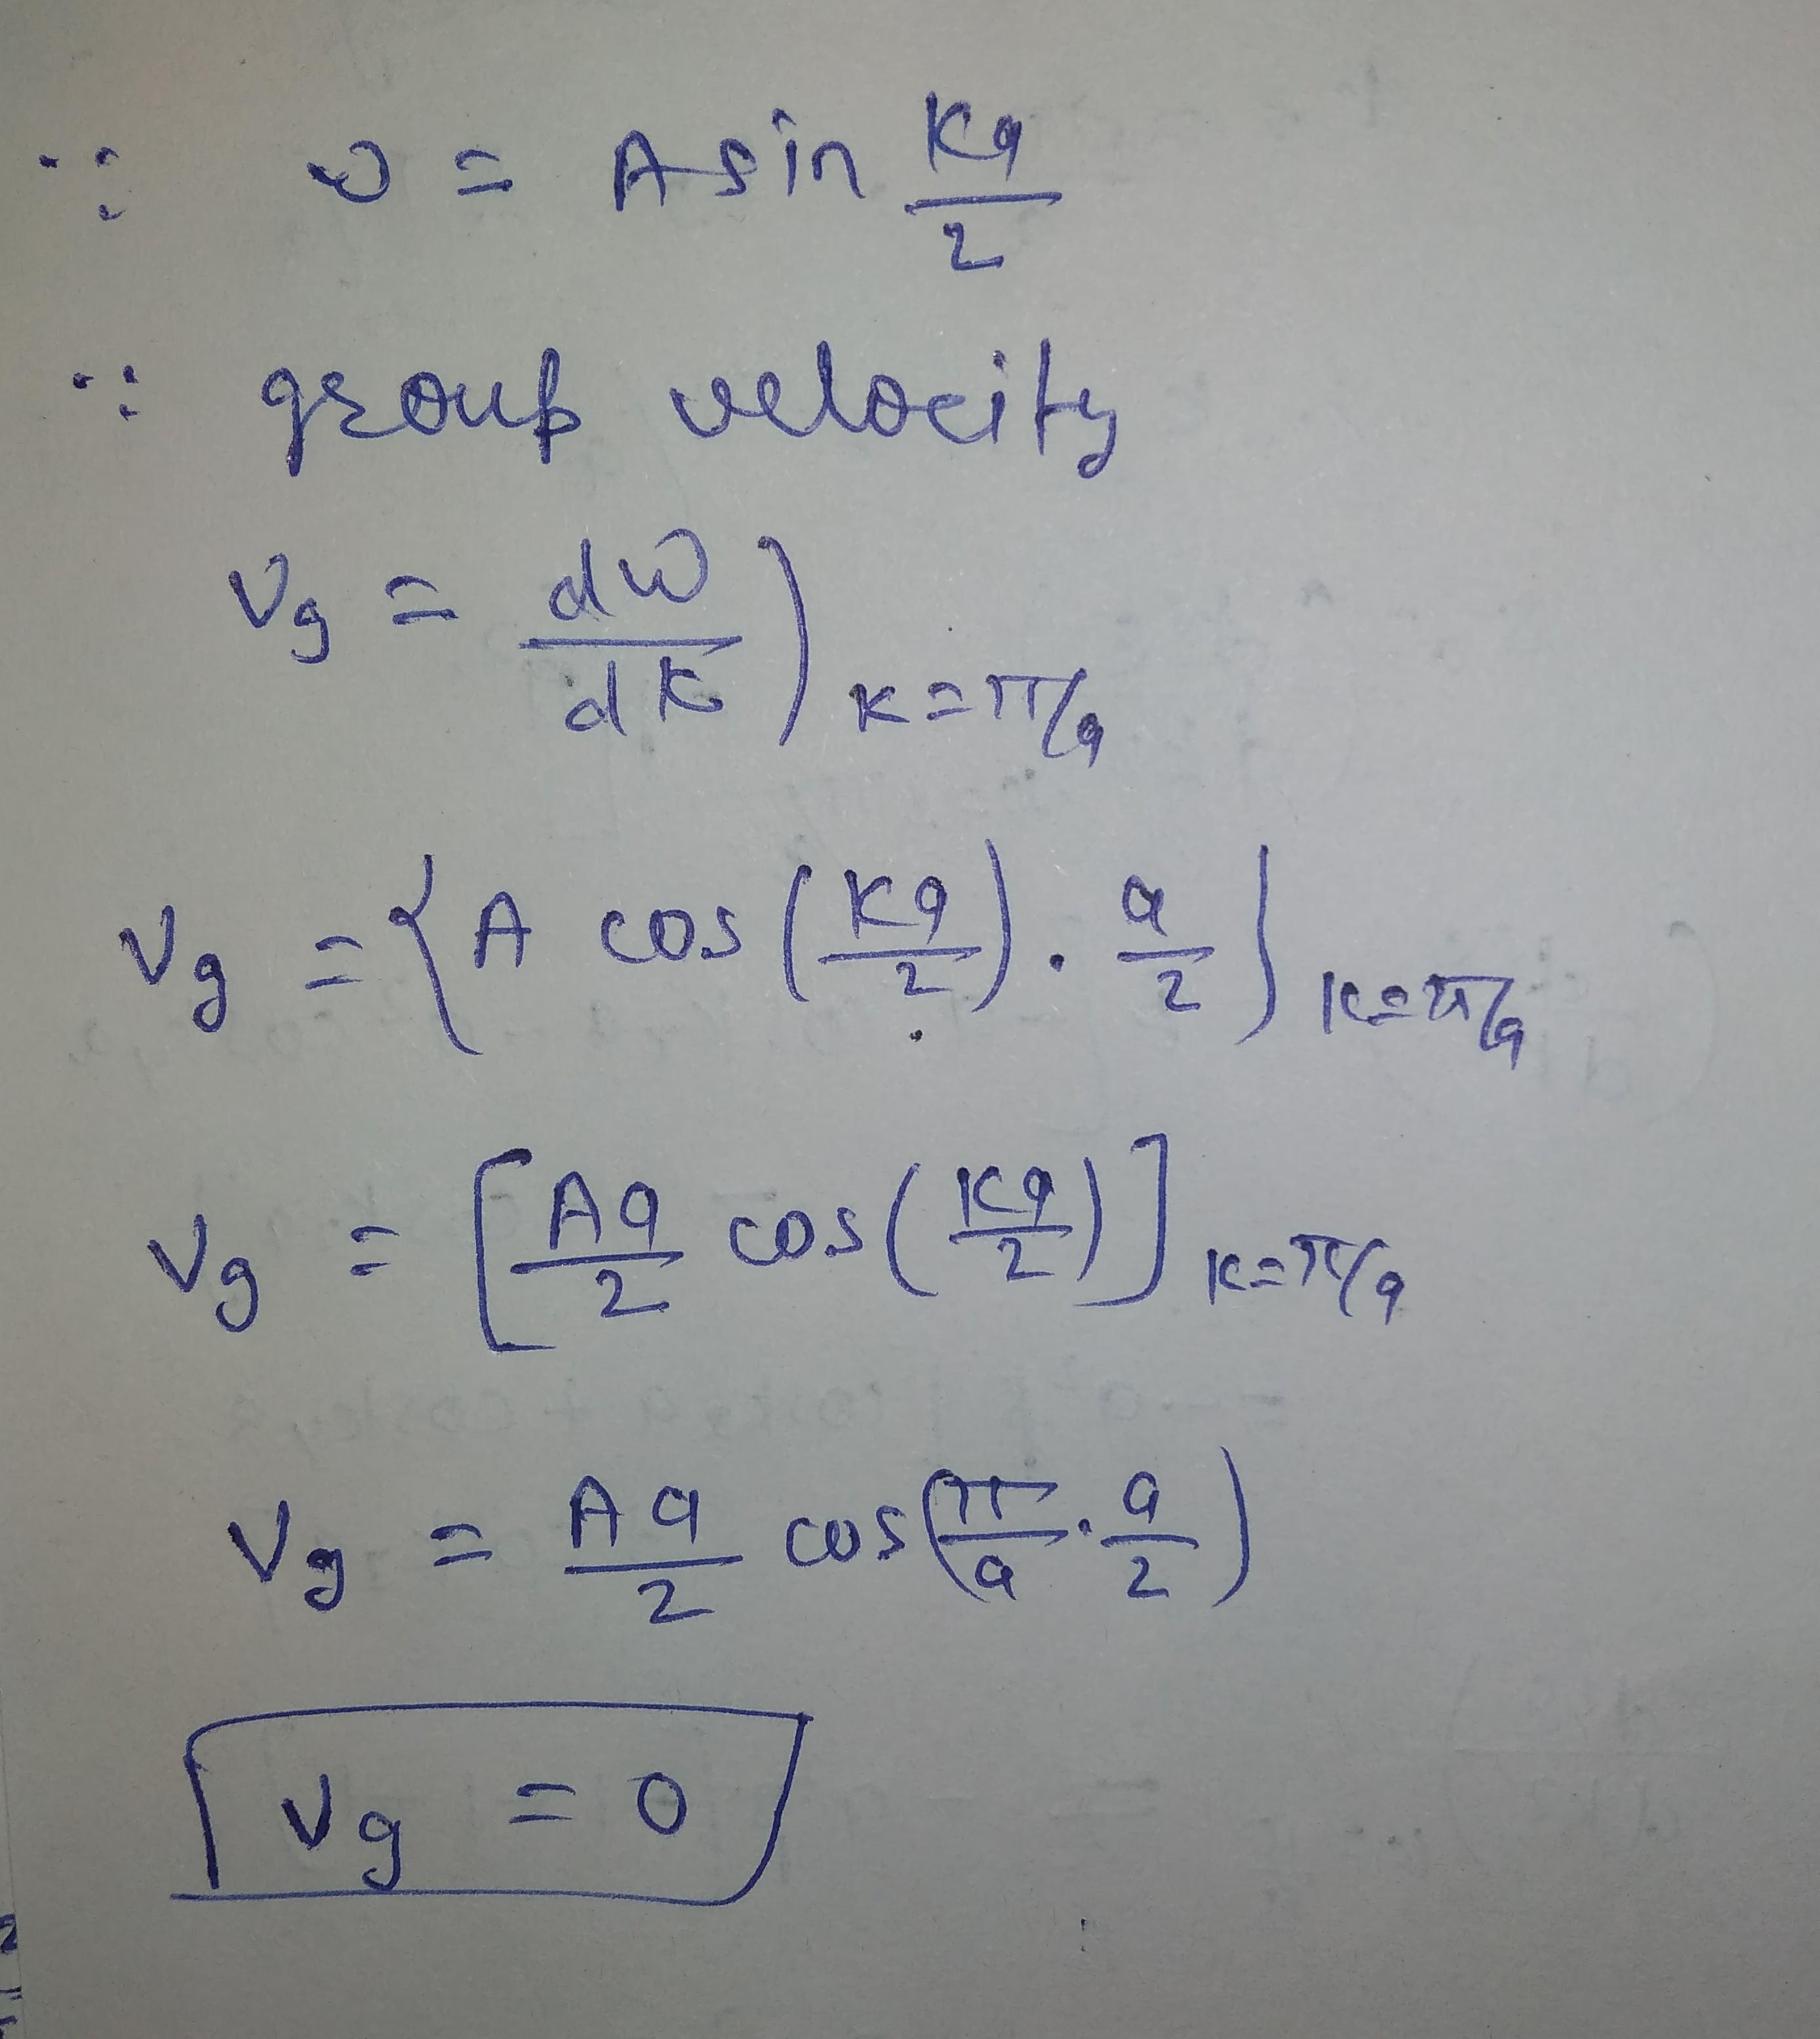 ∵ ω = A sin Ka/2
∵ group velocity
Vg = dω/dK )K=π/a
Vg = {A cos(Ka/2) . a/2)K=π/a
Vg = [Aa/2 cos(Ka/2)]K=π/a
Vg = Aa/2 cos(π/a . a/2)
Vg = 0